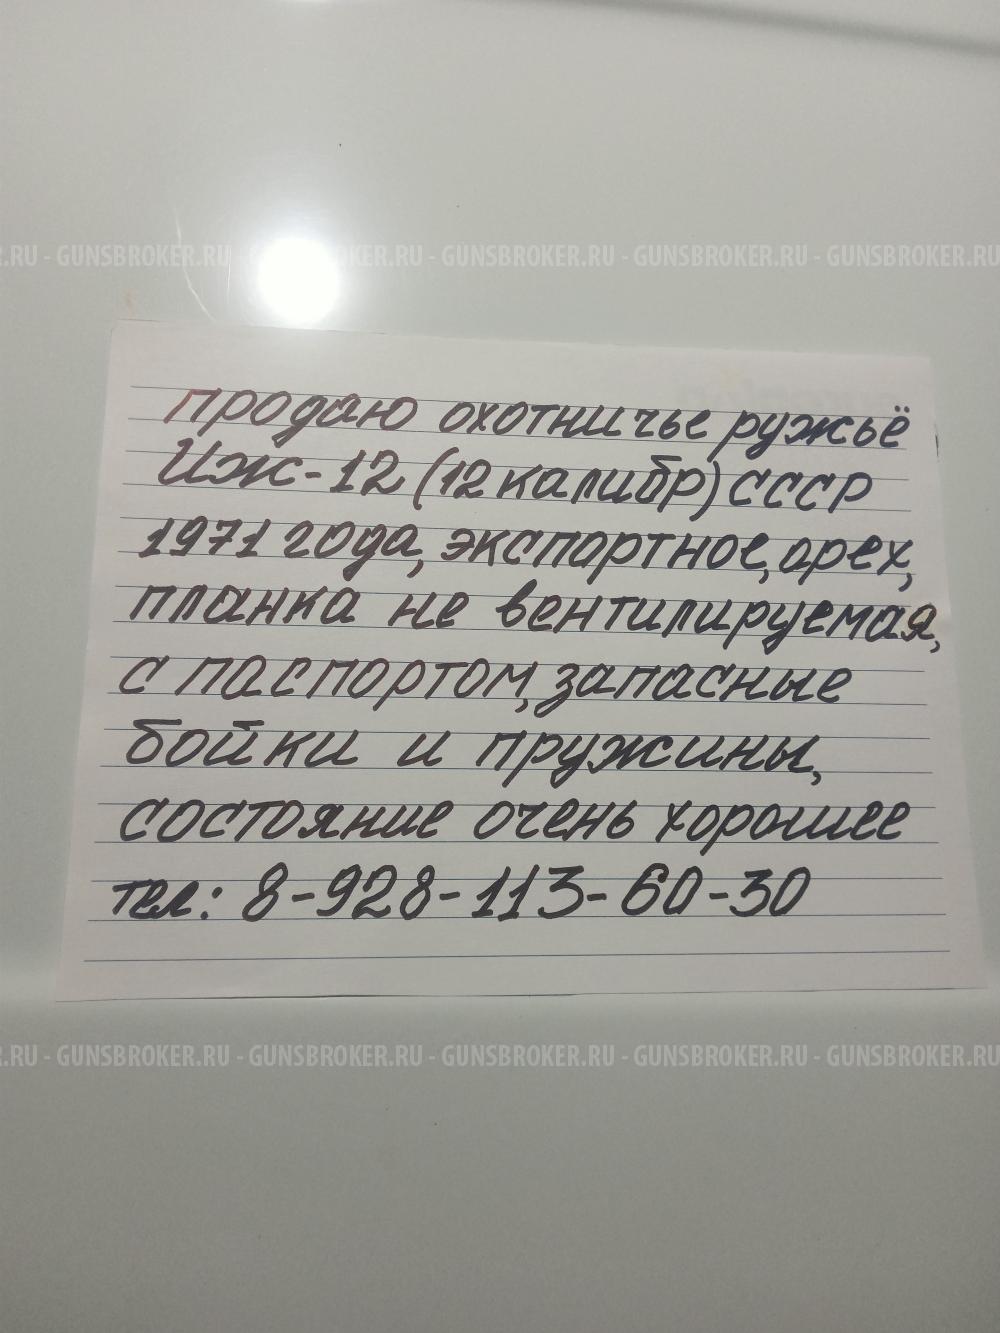 .RU - GUNSBROKER.RU - GUNSBROKER.RU - GUNSBROKER.RU - GUNSBROKER.RU - GUNSBROKER.RU
Продаю охотничье ружьё
ИЖ-12 (12 калибр) СССР
1971 года, экспортное, орех,
планка не вентилируемая,
с паспортом, запасные
бойки и пружины,
состояние очень хорошее
тел: 8-928-113-60-30
.RU - GUNSBROKER.RU - GUNSBROKER.RU - GUNSBROKER.RU - GUNSBROKER.RU - GUNSBROKER.RU